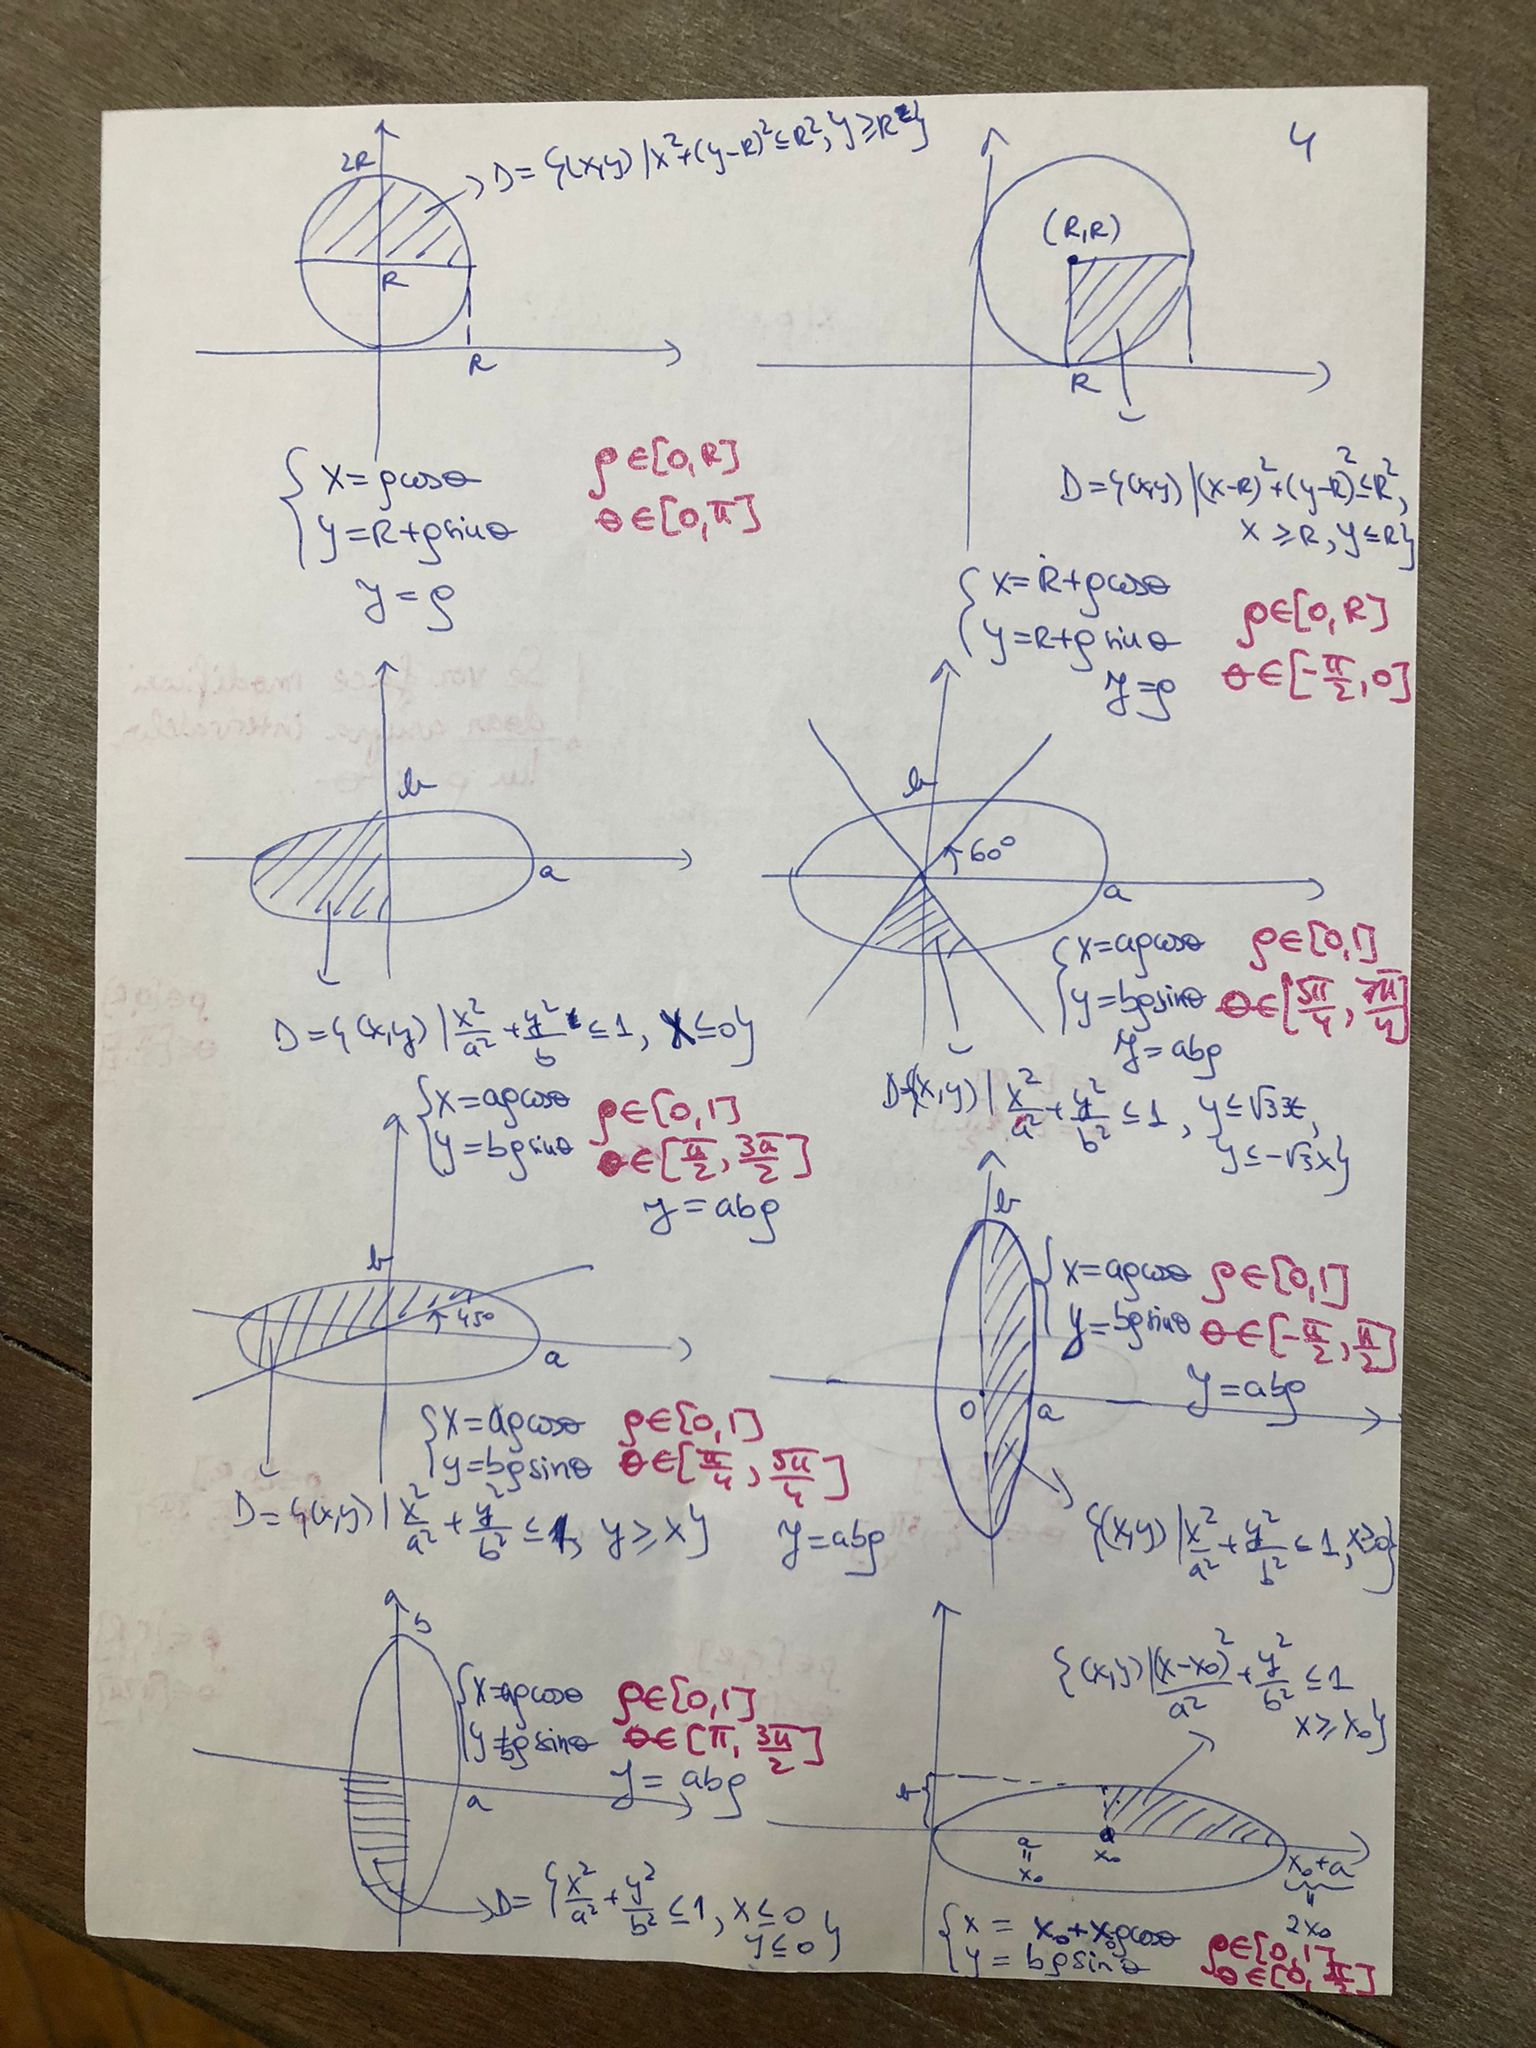 4
2R
D={(x,y) | x²+(y-R)²≤R², y≥R}
R
R
{ x=ρcosθ
y=R+ρsinθ
ρ∈[0,R]
θ∈[0,π]
J=ρ
(R,R)
R
D={(x,y) | (x-R)²+(y-R)²≤R²,
x≥R, y≤R}
{ x=R+ρcosθ
y=R+ρsinθ
ρ∈[0,R]
θ∈[-π/2,0]
J=ρ
b
a
D={(x,y) | x²/a²+y²/b ≤1, x≤0}
{ x=aρcosθ
y=bρsinθ
ρ∈[0,1]
θ∈[π/2, 3π/2]
J=abρ
b
60°
a
{ x=aρcosθ
y=bρsinθ
ρ∈[0,1]
θ∈[5π/4, 7π/4]
J=abρ
D={(x,y) | x²/a²+y²/b² ≤1, y≤√3x,
y≤-√3x}
b
45°
a
{ x=aρcosθ
y=bρsinθ
ρ∈[0,1]
θ∈[π/4, 5π/4]
D={(x,y) | x²/a²+y²/b² ≤1, y≥x}
J=abρ
b
{ x=aρcosθ
y=bρsinθ
ρ∈[0,1]
θ∈[-π/2, π/2]
J=abρ
0
a
{(x,y) | x²/a²+y²/b² ≤1, x≥0}
b
{ x=aρcosθ
y=bρsinθ
ρ∈[0,1]
θ∈[π, 3π/2]
J=abρ
a
D={ x²/a²+y²/b² ≤1, x≤0
y≤0 }
{(x,y) | (x-x₀)²/a²+y²/b² ≤1
x≥x₀}
b
a
=
x₀
x₀
x₀+a
=
2x₀
{ x=x₀+x₀ρcosθ
y=bρsinθ
ρ∈[0,1]
θ∈[0, π/2]